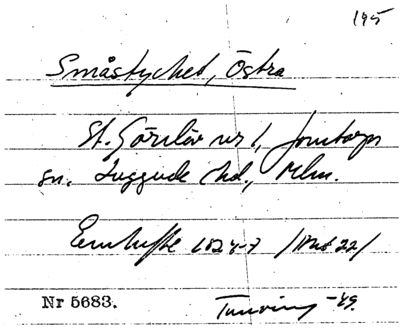 195
Småstycket, Östra
St. Görslöv nr 1, Jonstorps
sn. Luggude hd., Mlm.
Enskifte 1824-7 /Akt 22/
Nr 5683. Tunving -49.